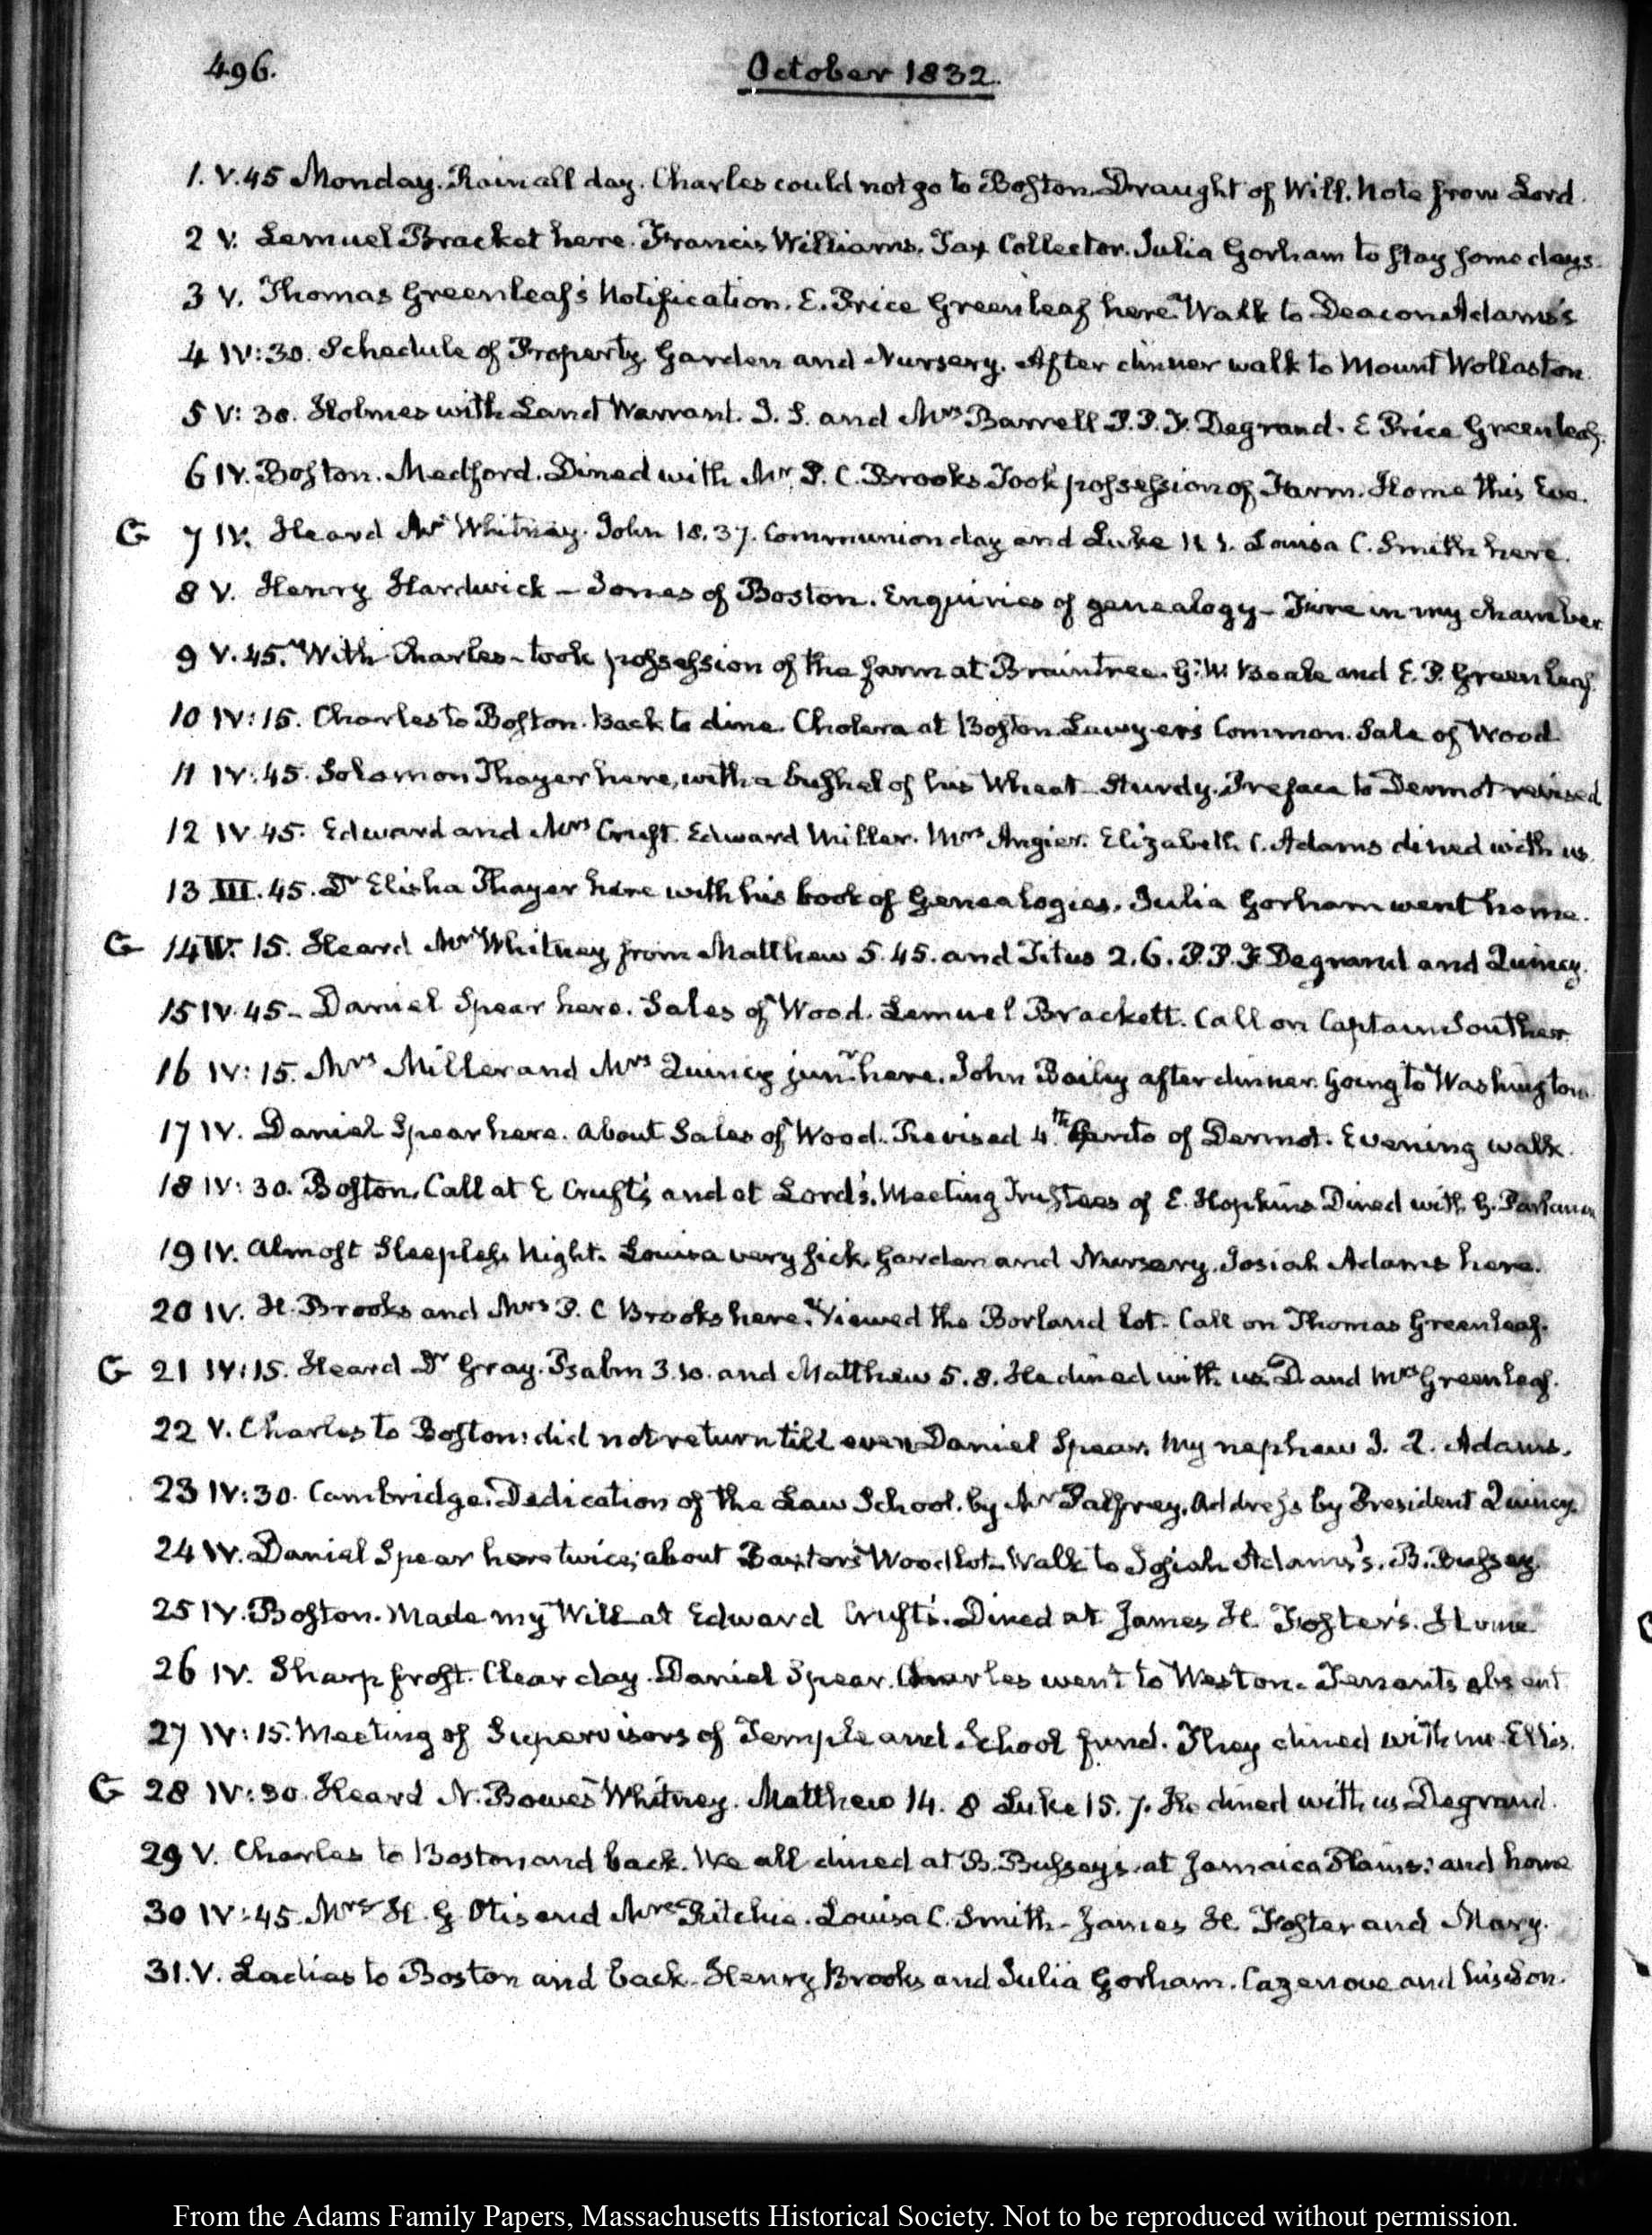 496.
October 1832.
1. V.45 Monday. Rain all day. Charles could not go to Boston. Draught of Will. Note from Lord.
2 V. Lemuel Bracket here. Francis Williams. Tax Collector. Julia Gorham to stay some days.
3 V. Thomas Greenleaf's Notification. E. Price Greenleaf here. Walk to Deacon Adams's
4 IV:30. Schedule of Property. Garden and Nursery. After dinner walk to Mount Wollaston.
5 V:30. Holmes with Land Warrant. J. S. and Mrs Barrell P.P.F. Degrand. E Price Greenleaf.
6 IV. Boston. Medford. Dined with Mr P. C. Brooks. Took possession of Farm. Home this Eve.
G 7 IV. Heard Mr Whitney. John 18.37. Communion day and Luke Louisa C. Smith here.
8 V. Henry Hardwick – Jones of Boston. Enquiries of genealogy – Fire in my chamber
9 V.45. With Charles – took possession of the farm at Braintree. G. W. Beale and E. P. Greenleaf.
10 IV:15. Charles to Boston. Back to dine. Cholera at Boston Lawyer's Common. Sale of Wood
11 IV:45. Solomon Thayer here, with a bushel of his Wheat. Sturdy. Preface to Dermot revised
12 IV.45. Edward and Mrs Cruft. Edward Miller. Mrs Angier. Elizabeth C. Adams dined with us.
13 III.45. Dr Elisha Thayer here with his book of Genealogies. Julia Gorham went home.
G 14 IV. 15. Heard Mr Whitney from Matthew 5.45. and Titus 2.6. P.P.F. Degrand and Quincy.
15 IV.45 – Daniel Spear here. Sales of Wood. Lemuel Brackett. Call on Captain Souther.
16 IV:15. Mrs Miller and Mrs Quincy junr here. John Baily after dinner. Going to Washington.
17 IV. Daniel Spear here. About Sales of Wood. Revised 4.th Canto of Dermot. Evening walk.
18 IV:30. Boston. Call at E Cruft's and at Lord's. Meeting Trustees of E. Hopkins Dined with G. Parkman
19 IV. Almost Sleepless Night. Louisa very sick. Garden and Nursery. Josiah Adams here.
20 IV. H. Brooks and Mrs P. C Brooks here. Viewed the Borland lot. Call on Thomas Greenleaf.
G 21 IV:15. Heard Dr Gray. Psalm 3.10. and Matthew 5.8. He dined with us. D and Mrs Greenleaf.
22 V. Charles to Boston: did not return till even Daniel Spear. My nephew J. Q. Adams.
23 IV:30. Cambridge. Dedication of the Law School. by Mr Palfrey. Address by President Quincy.
24 IV. Daniel Spear here twice; about Baxter's Wood lot – Walk to Josiah Adams's. B. Bussey.
25 IV. Boston. Made my Will at Edward Cruft's. Dined at James H. Foster's. Home
26 IV. Sharp frost. Clear day. Daniel Spear. Charles went to Weston. Tenants absent
27 IV:15. Meeting of Supervisors of Temple and School fund. They dined with me. Ellis.
G 28 IV:30. Heard N. Bowes Whitney. Matthew 14. 8 Luke 15. 7. He dined with us Degrand.
29 V. Charles to Boston and back. We all dined at B. Bussey's. at Jamaica Plains: and home
30 IV:45. Mrs H. G Otis and Mrs Ritchie. Louisa C. Smith – James H. Foster and Mary.
31. V. Ladies to Boston and back. Henry Brooks and Julia Gorham. Cazenove and his Son.
From the Adams Family Papers, Massachusetts Historical Society. Not to be reproduced without permission.